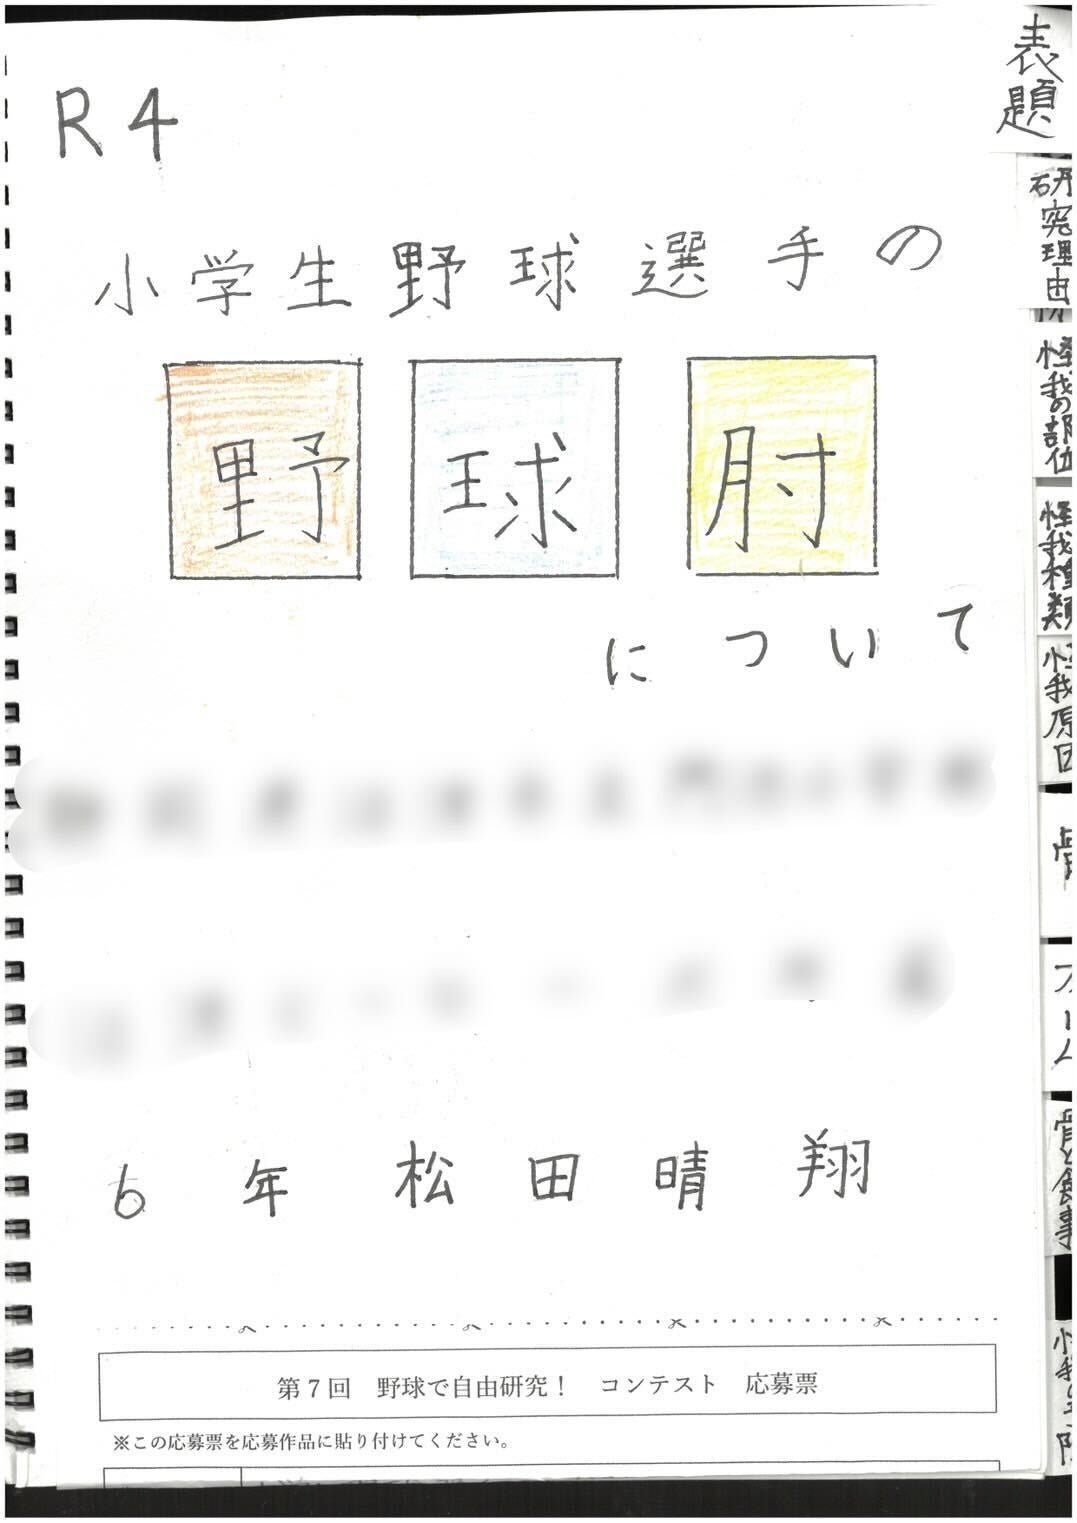 R4
小学生野球選手の
野球肘
について
6年 松田晴翔
第7回 野球で自由研究! コンテスト 応募票
※この応募票を応募作品に貼り付けてください。
表題
研究理由
怪我の部位
怪我種類
怪我原因
骨
フォーム
骨と食事